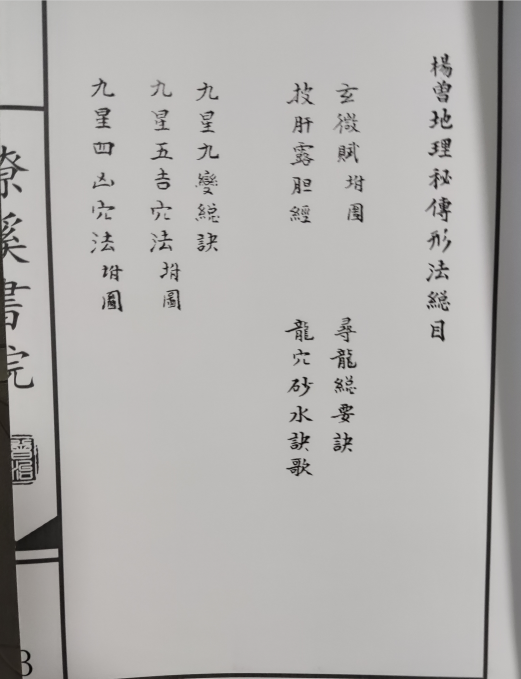 楊曾地理秘傳形法總目
玄微賦坿圖
尋龍總要訣
披肝露胆經
龍穴砂水訣歌
九星九變總訣
九星五吉穴法坿圖
九星四凶穴法坿圖
溪書院
3